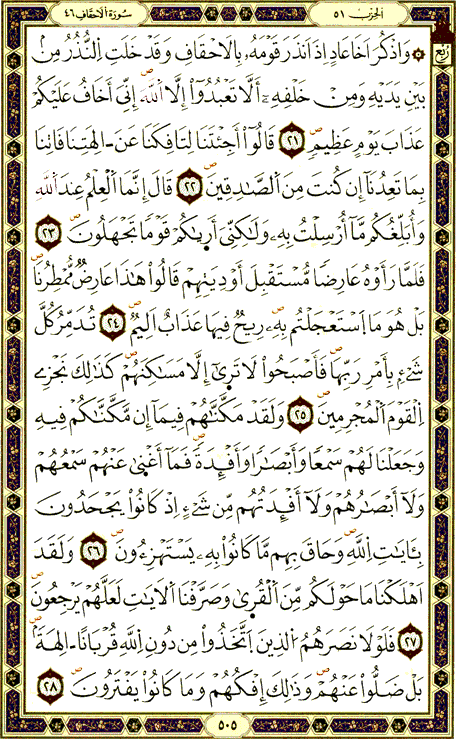 سُورَةُ الْأَحْقَافِ ٤٦
الحِزْب ٥١
ربع
وَاذْكُرَ اَخَا عَادٍ اِذَ اَنذَرَ قَوْمَهُۥ بِالَاحْقَافِ وَقَدْ خَلَتِ اِلنُّذُرُ مِنۢ
بَيْنِ يَدَيْهِ وَمِنْ خَلْفِهِۦٓ أَلَّا تَعْبُدُوٓاْ إِلَّا اَللَّهَ إِنِّيَ أَخَافُ عَلَيْكُمْ
عَذَابَ يَوْمٍ عَظِيمٍ ٢١ قَالُوٓاْ أَجِئْتَنَا لِتَافِكَنَا عَنَ اٰلِهَتِنَا فَاتِنَا
بِمَا تَعِدُنَآ إِن كُنتَ مِنَ اَلصَّٰدِقِينَ ٢٢ قَالَ إِنَّمَا اَلْعِلْمُ عِندَ اَللَّهِ
وَأُبَلِّغُكُم مَّآ أُرْسِلْتُ بِهِۦ وَلَٰكِنِّيَ أَر۪يٰكُمْ قَوْماً تَجْهَلُونَ ٢٣
فَلَمَّا رَأَوْهُ عَارِضاً مُّسْتَقْبِلَ أَوْدِيَتِهِمْ قَالُواْ هَٰذَا عَارِضٌ مُّمْطِرُنَا
بَلْ هُوَ مَا اَسْتَعْجَلْتُم بِهِۦ رِيحٌ فِيهَا عَذَابٌ اَلِيمٌ ٢٤ تُدَمِّرُ كُلَّ
شَےْءِۢ بِأَمْرِ رَبِّهَا فَأَصْبَحُواْ لَا تَر۪ىٰٓ إِلَّا مَسَٰكِنَهُمْ كَذَٰلِكَ نَجْزِے
اِلْقَوْمَ اَلْمُجْرِمِينَ ٢٥ وَلَقَدْ مَكَّنَّٰهُمْ فِيمَآ إِن مَّكَّنَّٰكُمْ فِيهِ
وَجَعَلْنَا لَهُمْ سَمْعاً وَأَبْصَٰراً وَأَفْـِٕدَةً فَمَآ أَغْن۪ىٰ عَنْهُمْ سَمْعُهُمْ
وَلَآ أَبْصَٰرُهُمْ وَلَآ أَفْـِٕدَتُهُم مِّن شَےْءٍ اِذْ كَانُواْ يَجْحَدُونَ
بِـَٔايَٰتِ اِللَّهِ وَحَاقَ بِهِم مَّا كَانُواْ بِهِۦ يَسْتَهْزِءُونَ ٢٦ وَلَقَدَ
اَهْلَكْنَا مَا حَوْلَكُم مِّنَ اَلْقُر۪ىٰ وَصَرَّفْنَا اَلَايَٰتِ لَعَلَّهُمْ يَرْجِعُونَ
٢٧ فَلَوْلَا نَصَرَهُمُ اُلذِينَ اَتَّخَذُواْ مِن دُونِ اِللَّهِ قُرْبَاناً اٰلِهَةَۢ
بَلْ ضَلُّواْ عَنْهُمْ وَذَٰلِكَ إِفْكُهُمْ وَمَا كَانُواْ يَفْتَرُونَ ٢٨
٥٠٥